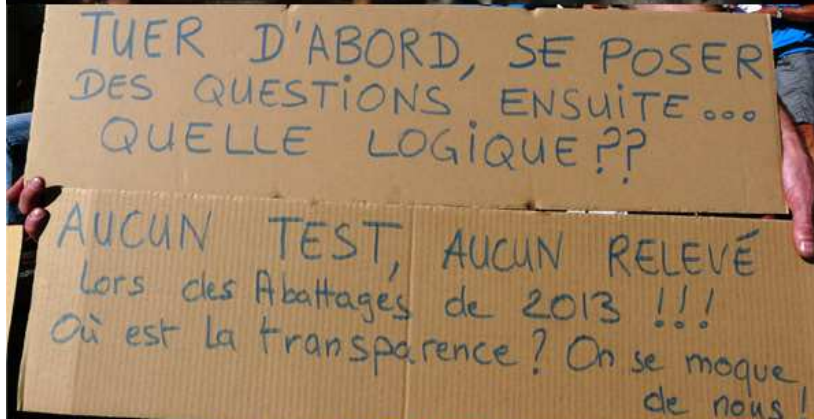 TUER D'ABORD, SE POSER
DES QUESTIONS ENSUITE...
QUELLE LOGIQUE??
AUCUN TEST, AUCUN RELEVÉ
Lors des Abattages de 2013 !!!
Où est la transparence ? On se moque
de nous !